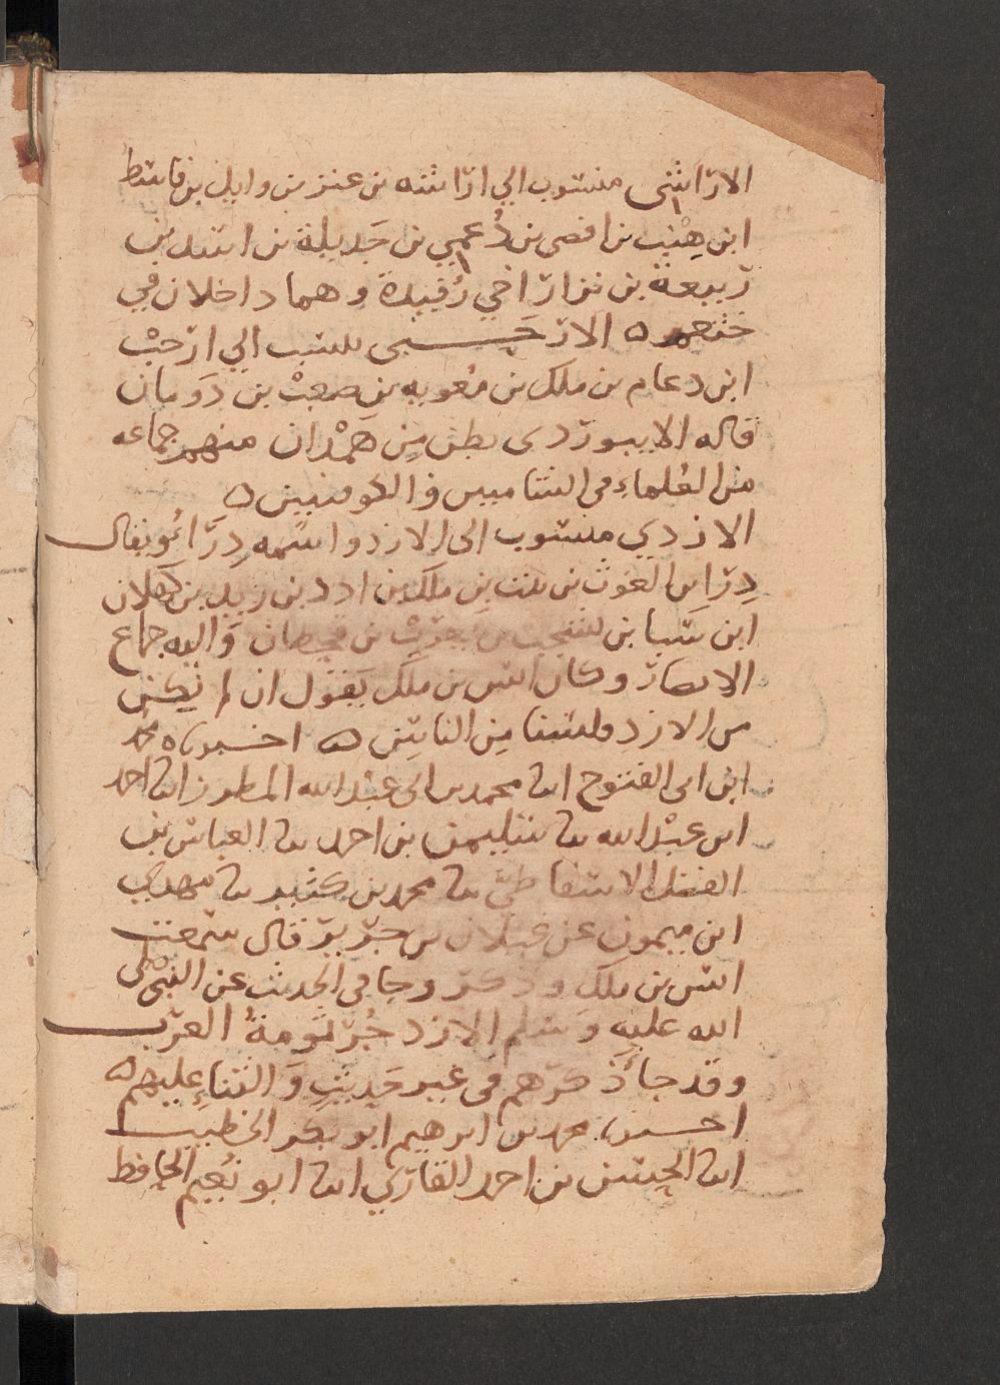 الاراشي منسوب الي اراشه بن عنز بن وايل بن قاسط
ابن هِنْب بن افصى بن دُعمِي بن جَديلة بن اسد بن
ربيعة بن نزار اخي رُفيدة وهما داخلان في
خثعم ه الارحَبى ينسب الي ارحبْ
ابن دعام بن ملك بن مُعويه بن صعبْ بن دَومان
قاله الابيوردى بطن مِن هَمْدان منهم جماعه
من العُلماءِ فى الشاميين والكوفيين ه
الازدي منسوب الى الازد واسمه دِرَاءُ ويقال
دِرَا بن الغوث بن نبت بن ملك بن ادد بن زيد بن كهلان
ابن سَبا بن يشجب بن يعربْ بن قحطان وَاليه جماع
الانصار وكان انس بن ملك يَقول ان لم نكن
من الازد فلسنا مِن الناس ه اخبرنا محمد
ابن ابى الفتوح انا محمد بن ابى عبْد الله المطرز انا احمد
ابن عبْد الله نا سليمن بن احمد نا العباس بن
الفضل الاسفاطيّ نا محمد بن كثير نا مهدي
ابن ميمون عن غيلان بن جرير قال سمعت
انس بن ملك وذكر وجا فى الحديث عن النبى صْلى
الله عليه وَسلم الازد جُرثومةُ العرب
وقد جاءَ ذكرهم فى غير حَديثٍ وَالثناءِ عليهم ه
اخبرنا محمد بن ابرهيم ابو بكر الخطيب
انا الحسن بن احمد القاري انا ابو نُعيم الحافظ